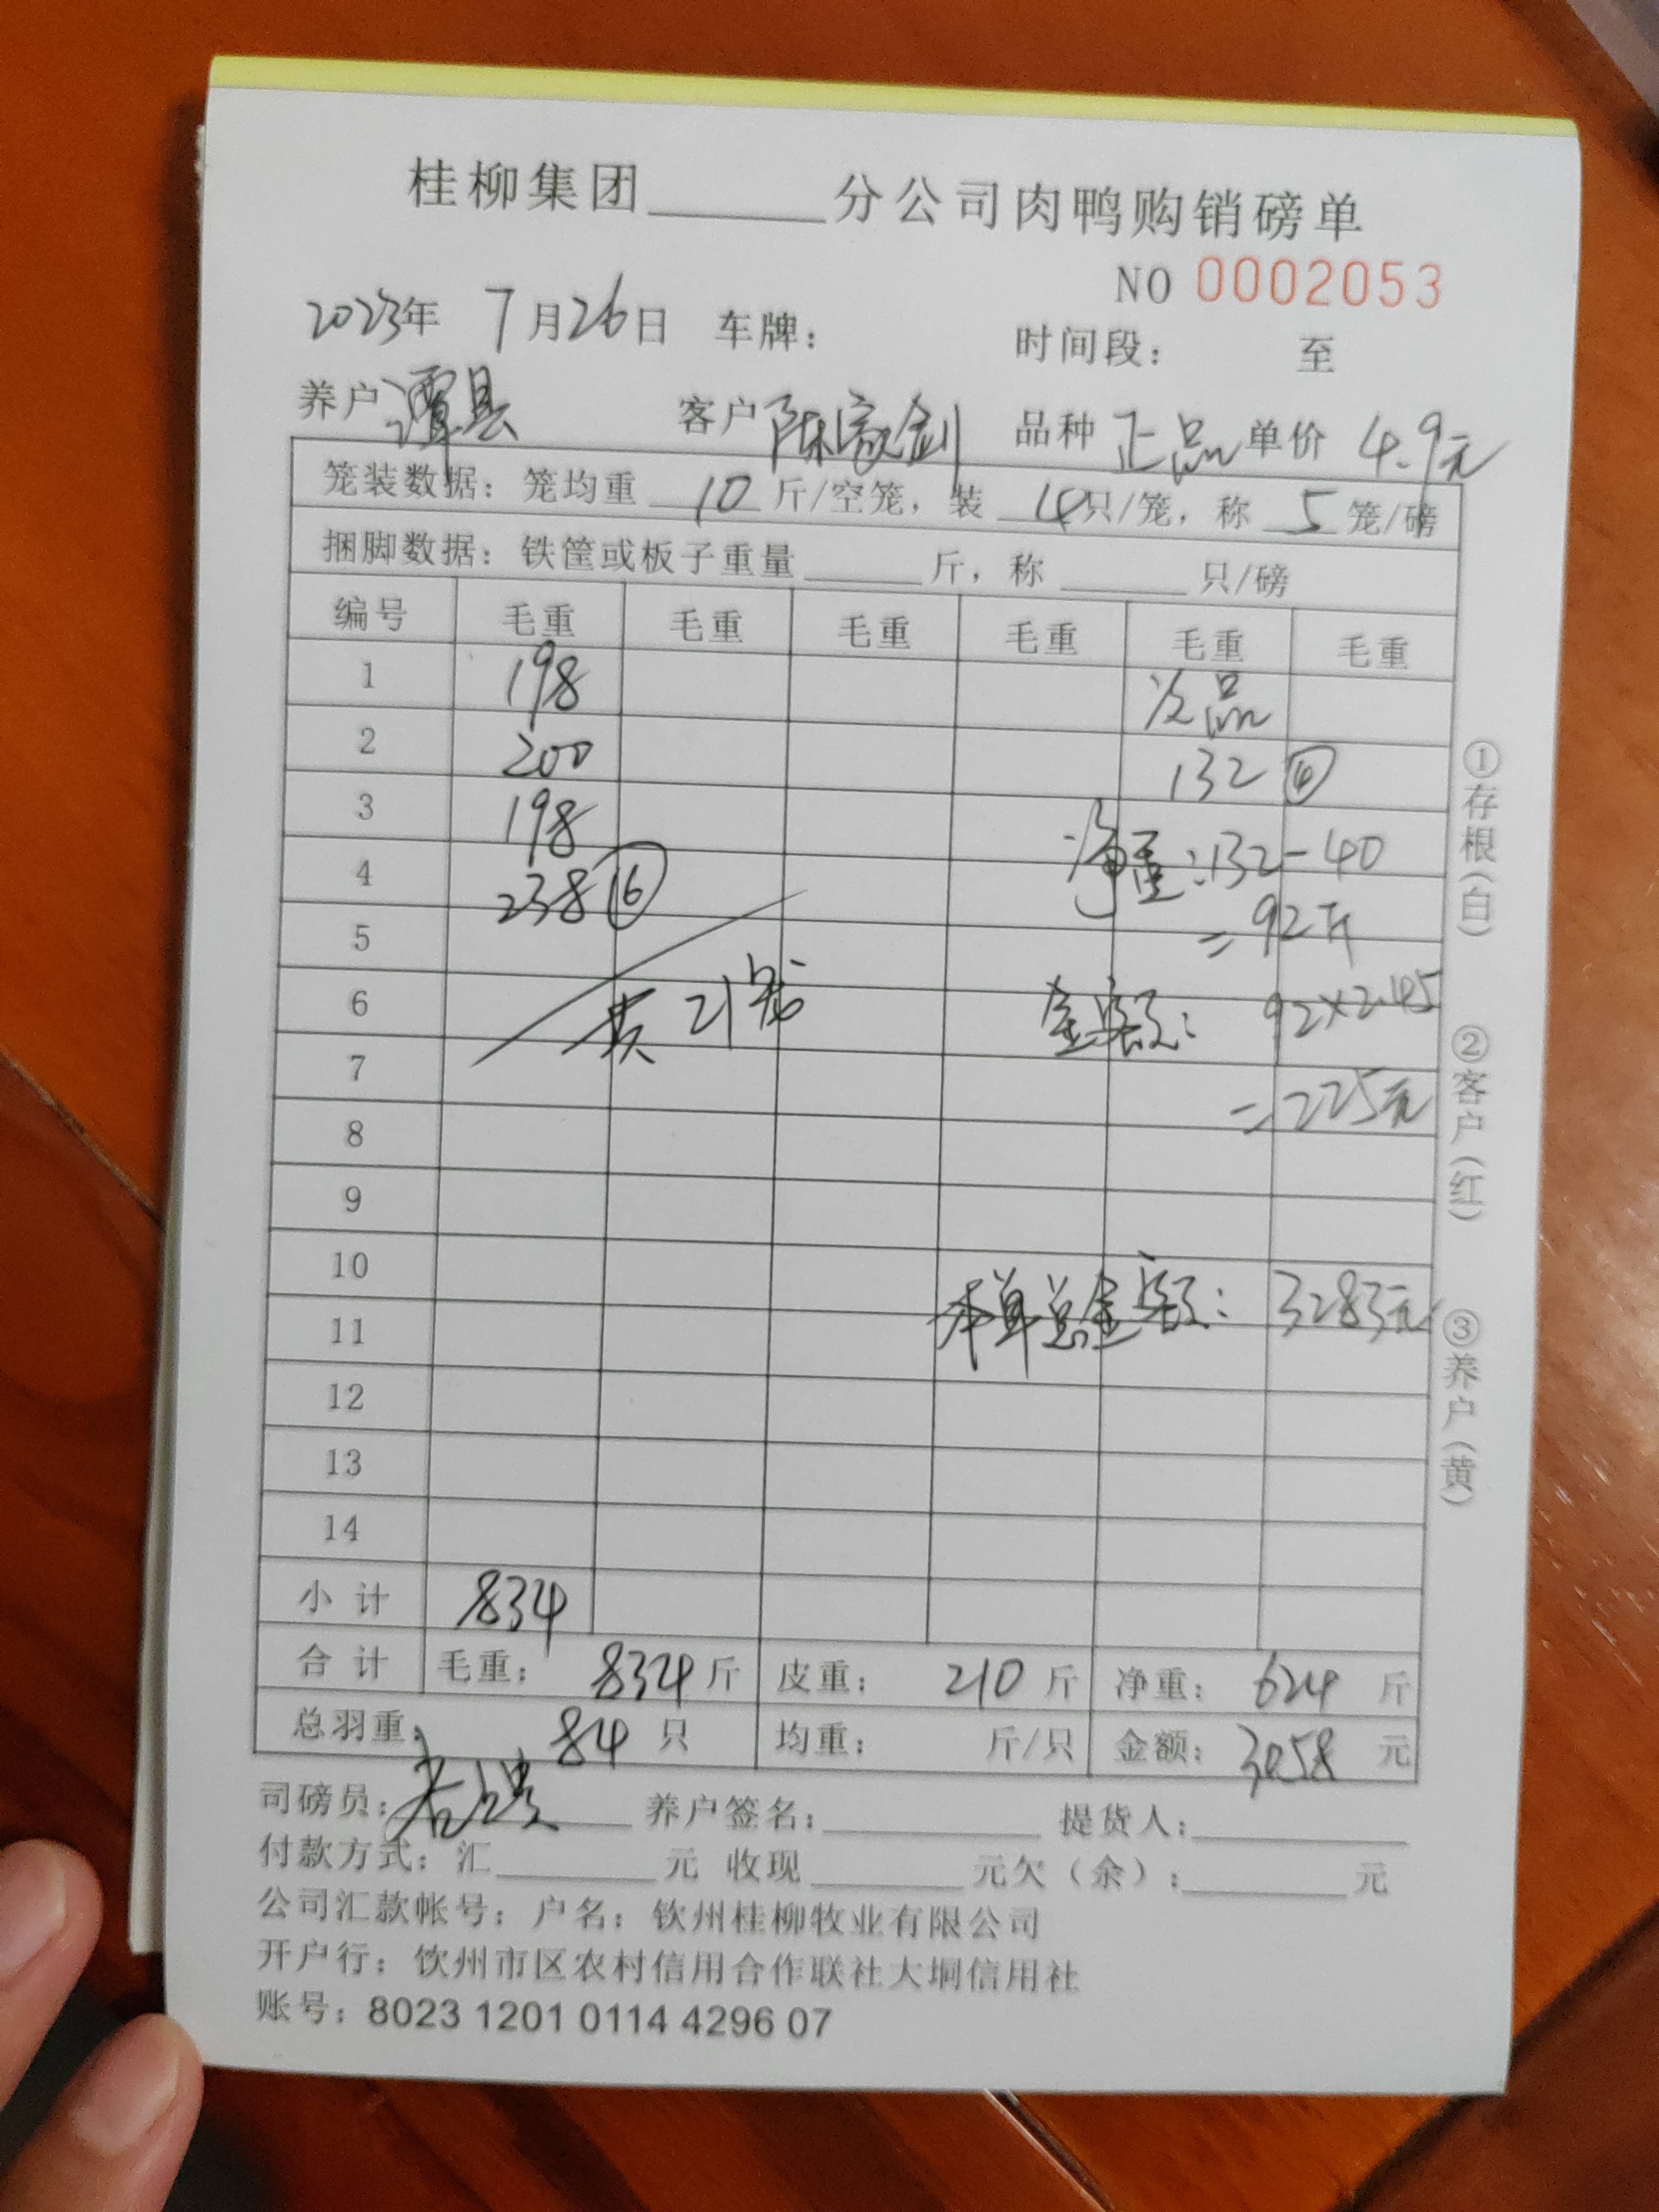 桂柳集团______分公司肉鸭购销磅单
NO 0002053
2023年 7月26日 车牌： 时间段： 至
养户 谭县 客户 陈家剑 品种 正品 单价 4.9元
笼装数据：笼均重 10 斤/空笼，装 4只/笼，称 5 笼/磅
捆脚数据：铁筐或板子重量______斤，称______只/磅
编号 毛重 毛重 毛重 毛重 毛重 毛重
1 198 次品
2 200 132 ④
3 198 净重：132-40
4 238 ⑥ =92斤
5
6 共21笼 金额：92×2.45
7 =225元
8
9
10 本单总金额：3283元
11
12
13
14
小计 834
合计 毛重：834斤 皮重：210斤 净重：624斤
总羽重：84只 均重： 斤/只 金额：3058元
司磅员： 养户签名： 提货人：
付款方式：汇______元 收现______元欠（余）：______元
公司汇款帐号：户名：钦州桂柳牧业有限公司
开户行：钦州市区农村信用合作联社大垌信用社
账号：8023 1201 0114 4296 07
①存根（白）
②客户（红）
③养户（黄）